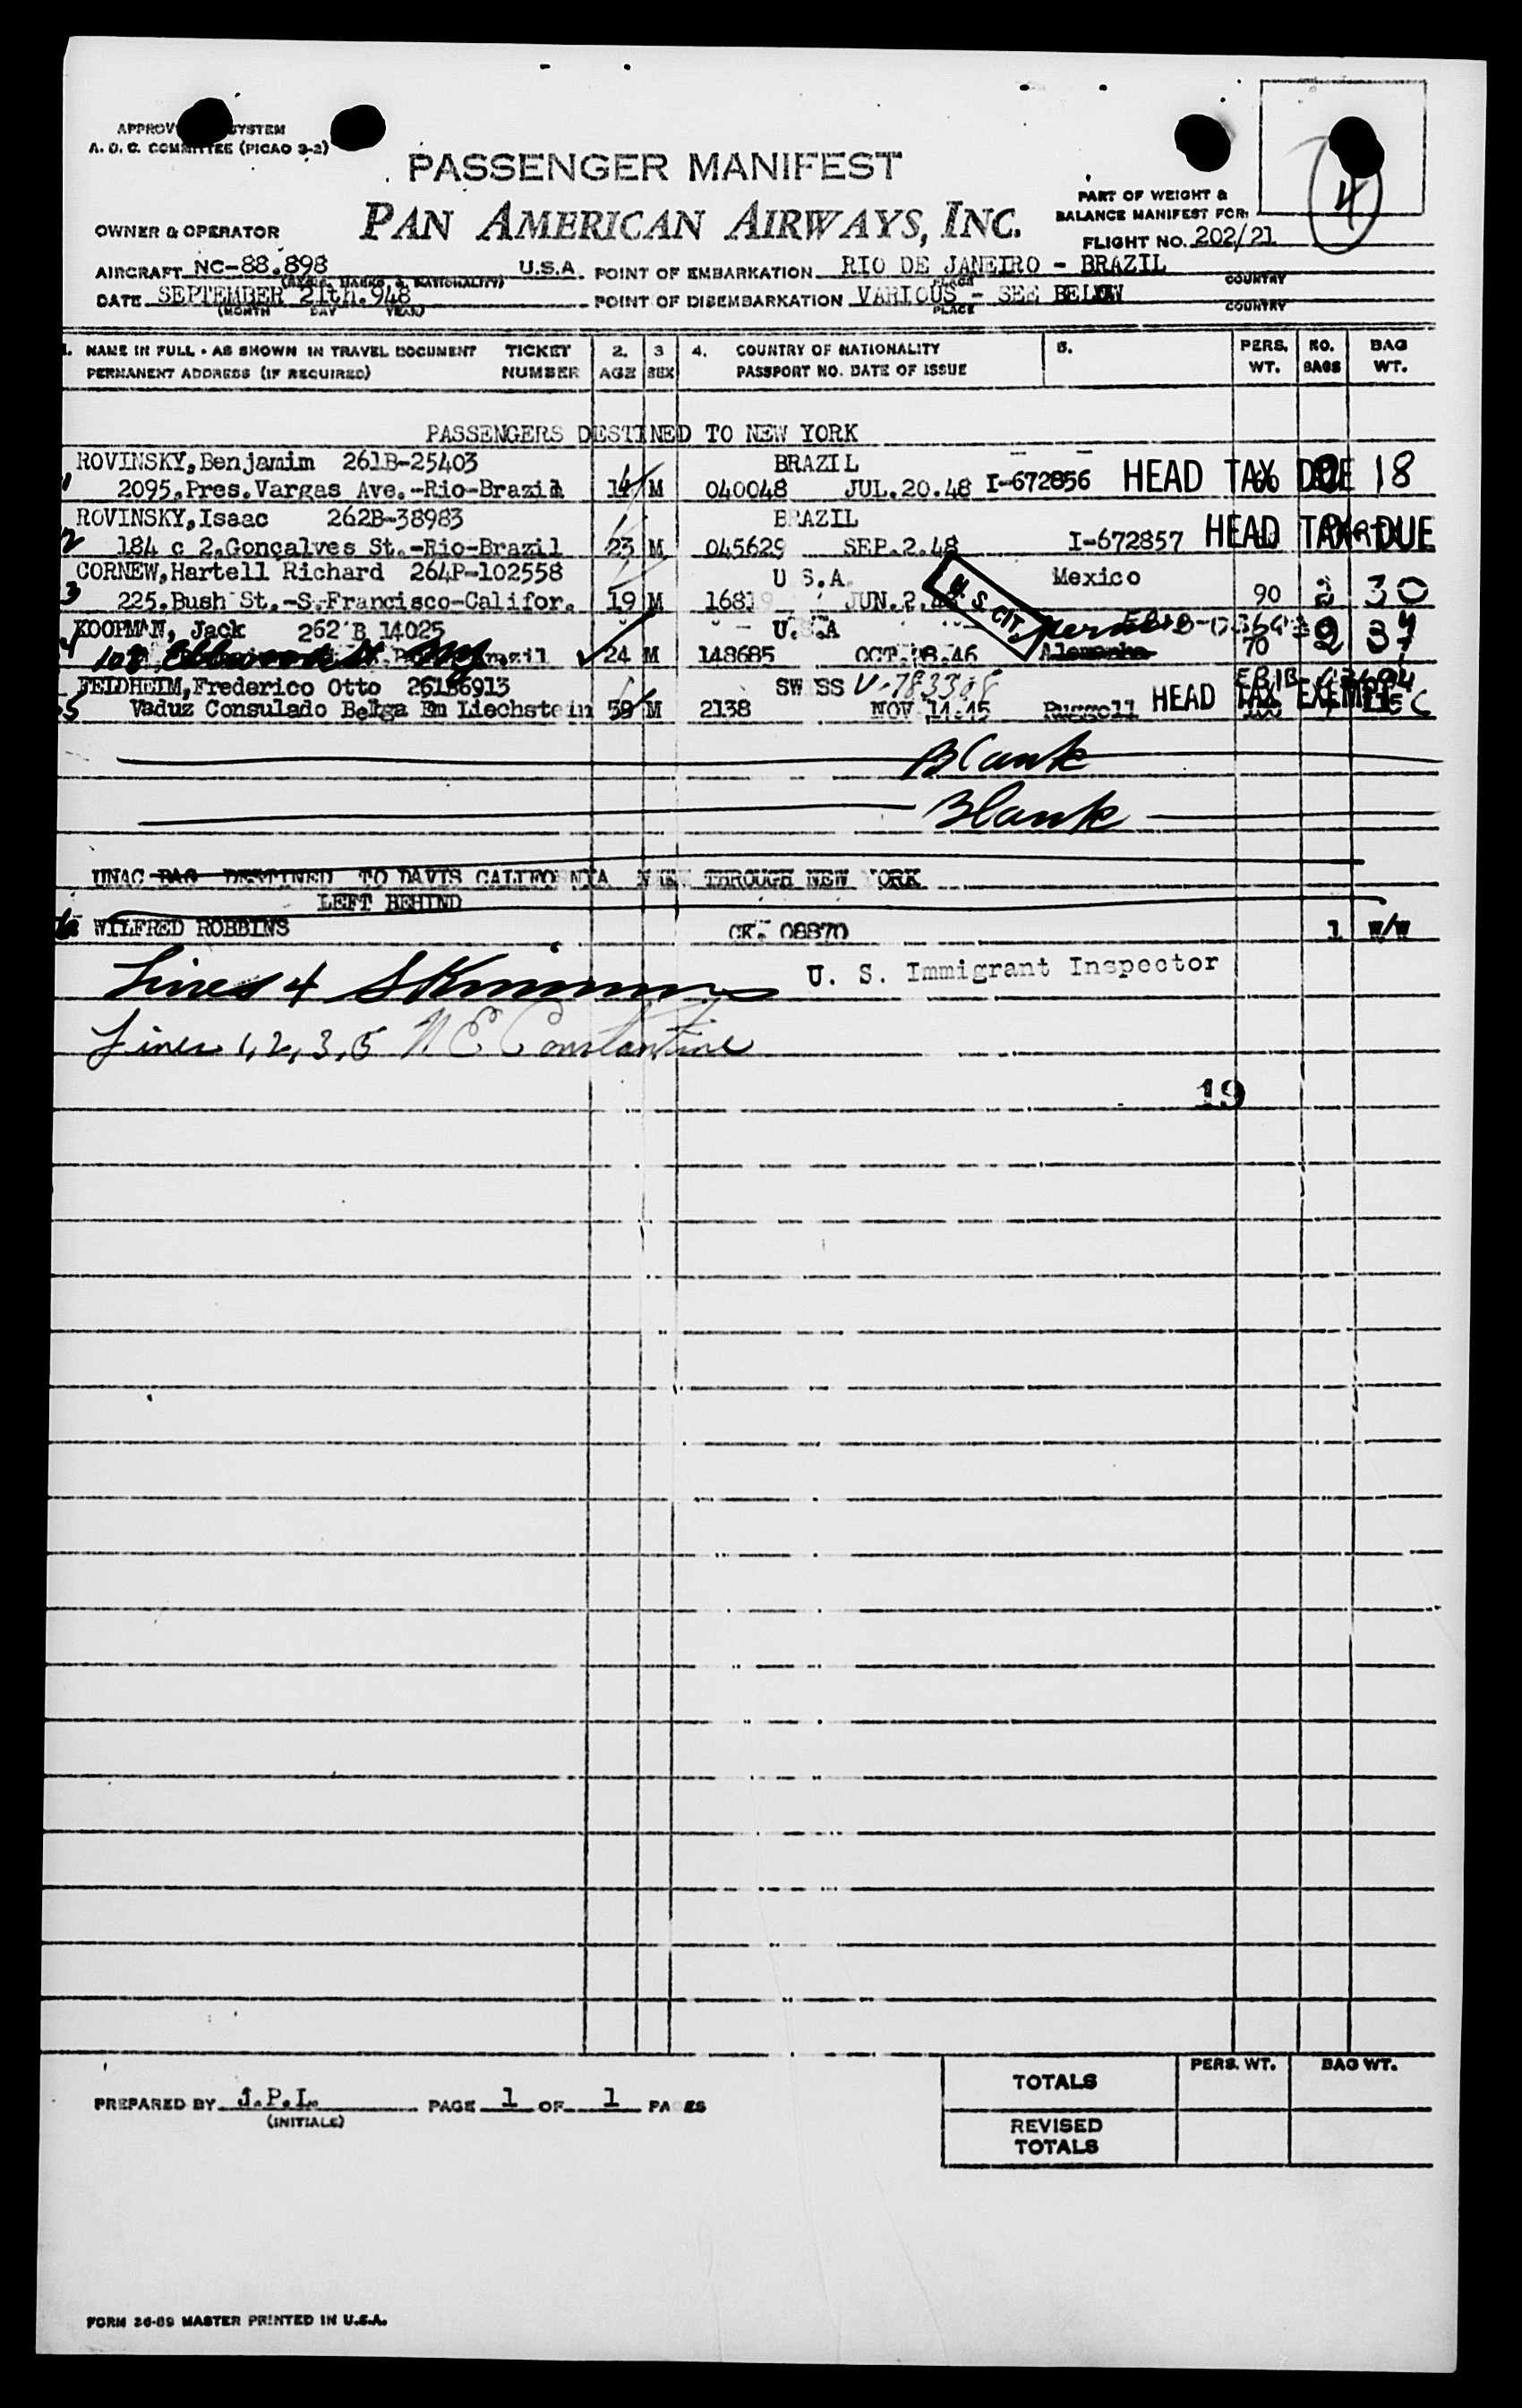 APPROV SYSTEM
A. D. C. COMMITTEE (PICAO 3-2)
4
PASSENGER MANIFEST
PART OF WEIGHT &
BALANCE MANIFEST FOR:
OWNER & OPERATOR PAN AMERICAN AIRWAYS, INC.
FLIGHT NO. 202/21
AIRCRAFT NC-88.898 U.S.A. POINT OF EMBARKATION RIO DE JANEIRO - BRAZIL
(REGIS. MARKS & NATIONALITY) PLACE COUNTRY
DATE SEPTEMBER 21th.948 POINT OF DISEMBARKATION VARIOUS - SEE BELOW
(MONTH DAY YEAR) PLACE COUNTRY
1. NAME IN FULL - AS SHOWN IN TRAVEL DOCUMENT TICKET 2. 3 4. COUNTRY OF NATIONALITY 5. PERS. NO. BAG
PERMANENT ADDRESS (IF REQUIRED) NUMBER AGE SEX PASSPORT NO. DATE OF ISSUE WT. BAGS WT.
PASSENGERS DESTINED TO NEW YORK
ROVINSKY,Benjamim 261B-25403 BRAZIL
1 2095.Pres.Vargas Ave.-Rio-Brazil 14 M 040048 JUL.20.48 I-672856 HEAD TAX DUE 18
ROVINSKY,Isaac 262B-38983 BRAZIL
2 184 c 2.Gonçalves St.-Rio-Brazil 23 M 045629 SEP.2.48 I-672857 HEAD TAX DUE
CORNEW,Hartell Richard 264P-102558 U.S.A. Mexico
3 225.Bush St.-S.Francisco-Califor. 19 M 1681 JUN.2. U. S. CIT. 90 2 30
KOOPMAN, Jack 262 B 14025 U.S.A
4 24 M 148685 OCT. 8.46 Alemanha 70 2 37
FEIDHEIM,Frederico Otto 261B6913 SWISS V-783308
5 Vaduz Consulado Belga Em Liechstein 59 M 2138 NOV 14.45 Ruggell HEAD TAX EXEMPT
Blank
Blank
UNAC BAG DESTINED TO DAVIS CALIFORNIA VIA THROUGH NEW YORK
LEFT BEHIND
WILFRED ROBBINS CK. 08870 1 W/W
Lines 4 U. S. Immigrant Inspector
Lines 1, 2, 3, 5 N E Constantine
19
TOTALS PERS. WT. BAG WT.
PREPARED BY J.P.L. PAGE 1 OF 1 PAGES
(INITIALS)
REVISED
TOTALS
FORM 36-89 MASTER PRINTED IN U.S.A.